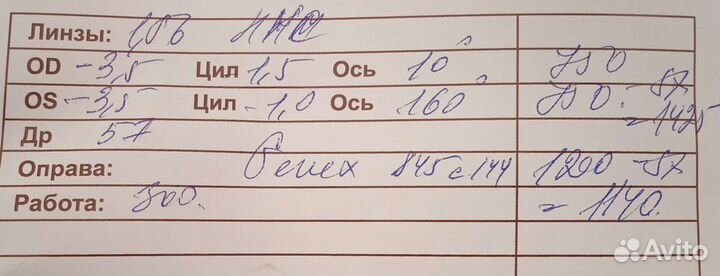 Линзы: 1,56 НМС
OD -3,5 Цил 1,5 Ось 10° 750
OS -3,5 Цил -1,0 Ось 160° 750. -5%
= 1425
Др 57
Оправа: 845 c144 1200 -5%
Работа: 500. = 1140.
Avito